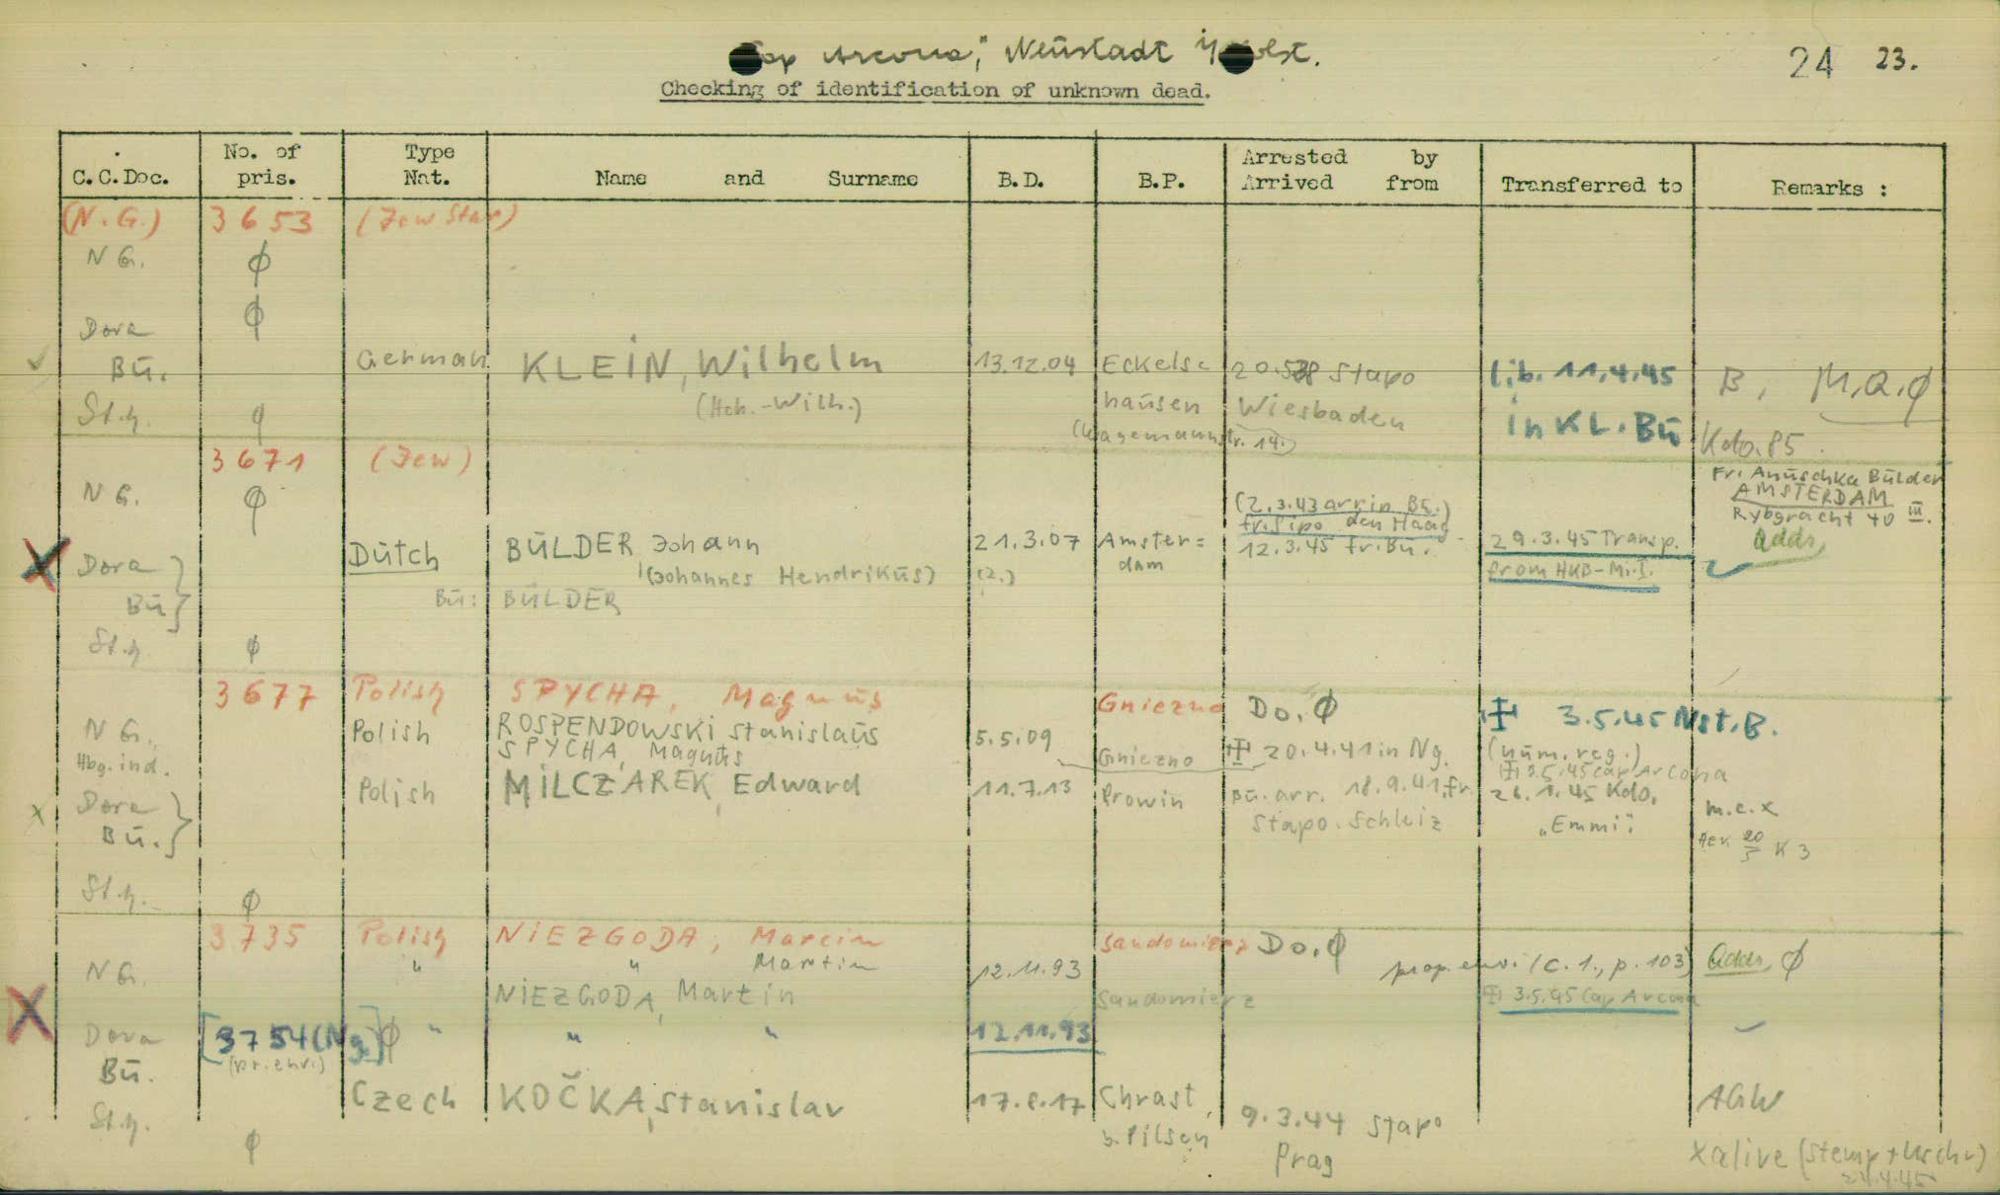 "Cap Arcona", Neustadt i/Holst.
24 23.
Checking of identification of unknown dead.
C.C.Doc. No. of pris. Type Nat. Name and Surname B.D. B.P. Arrested by Arrived from Transferred to Remarks :
(N.G.) 3653 (Jew Star)
N G. ϕ
ϕ
Dora
Bü. German KLEIN, Wilhelm 13.12.04 Eckels= 20.5.38 Stapo lib. 11.4.45 B, M.a.ϕ
hausen Wiesbaden in KL. Bü
St.h. ϕ (Hch.-Wilh.)
(Wagemannstr. 14.) Kdo.85.
3671 (Jew)
Fr. Anuschka Bülder
N G. ϕ (2.3.43 arr in Bü.) AMSTERDAM
fr. Sipo den Haag Rybgracht 40 III.
Dutch BÜLDER Johann 21.3.07 Amster= 12.3.45 fr. Bü. 29.3.45 Transp. adds
Dora (Johannes Hendrikus) (2.) dam from HKB-M.I.
Bü Bü: BÜLDER
St.h. ϕ
3677 Polish SPYCHA, Magnus Gniezno Do. ϕ ☩ 3.5.45 Nst.B.
N G. Polish ROSPENDOWSKI Stanislaus 5.5.09 (num. reg.)
Hbg. ind. SPYCHA, Magnus Gniezno ☩ 20.4.41 in Ng. ☩ 3.5.45 Cap Arcona
Dora Polish MILCZAREK, Edward 11.7.13 Prowin Bü. arr. 18.9.41 fr. 26.1.45 Kdo. m.c.x
Bü. Stapo. Schleiz "Emmi". 20/5 K 3
St.h. ϕ
3735 Polish NIEZGODA, Marcin Sandomierz Do. ϕ
N G. " " Martin 12.11.93 prop. envi (C.1., p. 103) Adds ϕ
NIEZGODA, Martin Sandomierz ☩ 3.5.45 Cap Arcona
Dora [3754 (Ng.)] ϕ " " " 12.11.93
(pr. envi)
Bü. Czech KOČKA, Stanislav 17.8.17 Chrast, 9.3.44 Stapo AGW
St.h. ϕ b. Pilsen Prag
xalive (Stemp + Uschr)
24.4.45